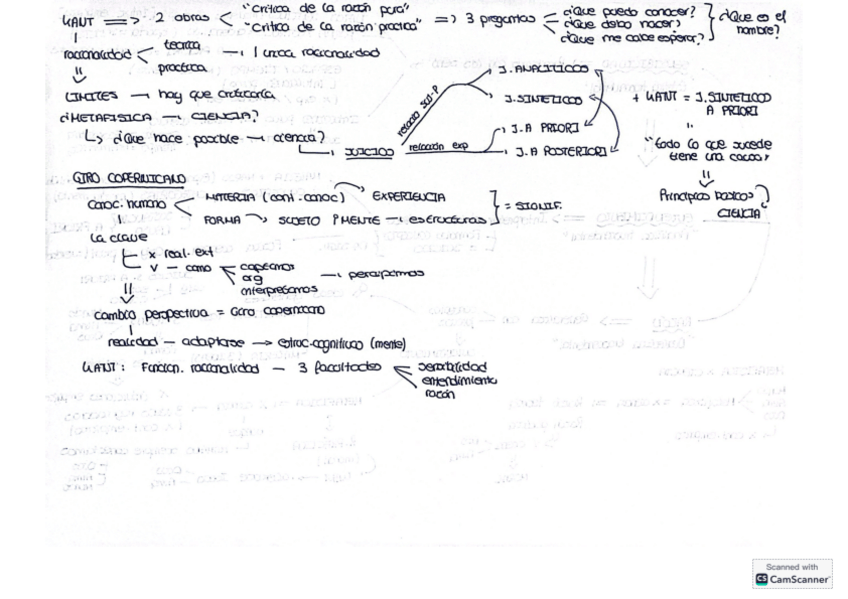 KANT ==> 2 obras < "Crítica de la razón pura" "Crítica de la razón práctica" => 3 preguntas < ¿Que puedo conocer? ¿Que debo hacer? ¿Que me cabe esperar? } ¿Que es el hombre?
racionalidad < teórica práctica → 1 única racionalidad
LÍMITES → hay que criticarla
¿METAFÍSICA → CIENCIA?
↳ ¿Que hace posible → ciencia?
JUICIO
relación SUJ-P
J. ANALÍTICOS
J. SINTÉTICOS
relación exp
J. A PRIORI
J. A POSTERIORI
+ KANT = J. SINTÉTICO A PRIORI
"todo lo que sucede tiene una causa"
Principios básicos
CIENCIA
GIRO COPERNICANO
conoc. humano < MATERIA EXPERIENCIA
FORMA → SUJETO MENTE → estructuras } = SIGNIF.
la clave
x real. ext
v - como < captamos org interpretamos → percibimos
cambio perspectiva = Giro copernicano
realidad - adaptarse → estruc. cognitivo (mente)
KANT: Funcion. racionalidad - 3 facultades < sensibilidad
entendimiento
razón
Scanned with
CS CamScanner